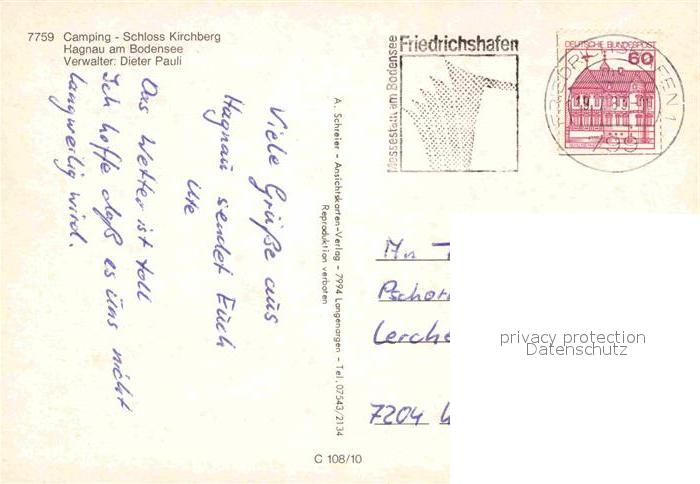 7759 Camping - Schloss Kirchberg
Hagnau am Bodensee
Verwalter: Dieter Pauli
Viele Grüße aus
Hagnau sendet Euch
Ute
Das Wetter ist toll
Ich hoffe daß es uns nicht
langweilig wird.
A. Schreier - Ansichtskarten-Verlag - 7994 Langenargen - Tel. 07543/2134
Reproduktion verboten
C 108/10
Friedrichshafen
Messestadt am Bodensee
DEUTSCHE BUNDESPOST
60
FRIEDRICHSHAFEN 1
799
7204
privacy protection
Datenschutz